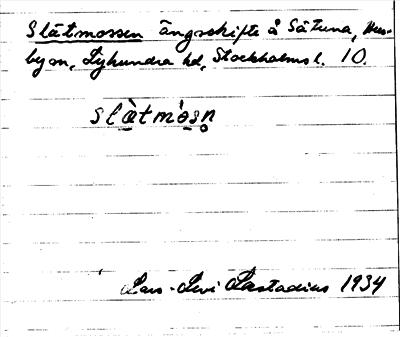 Slätmossen ängsskifte å Sätuna, Hus-
by sn, Lyhundra hd, Stockholms l. 10.
slàtmòsn̥
Lars-Levi Læstadius 1934